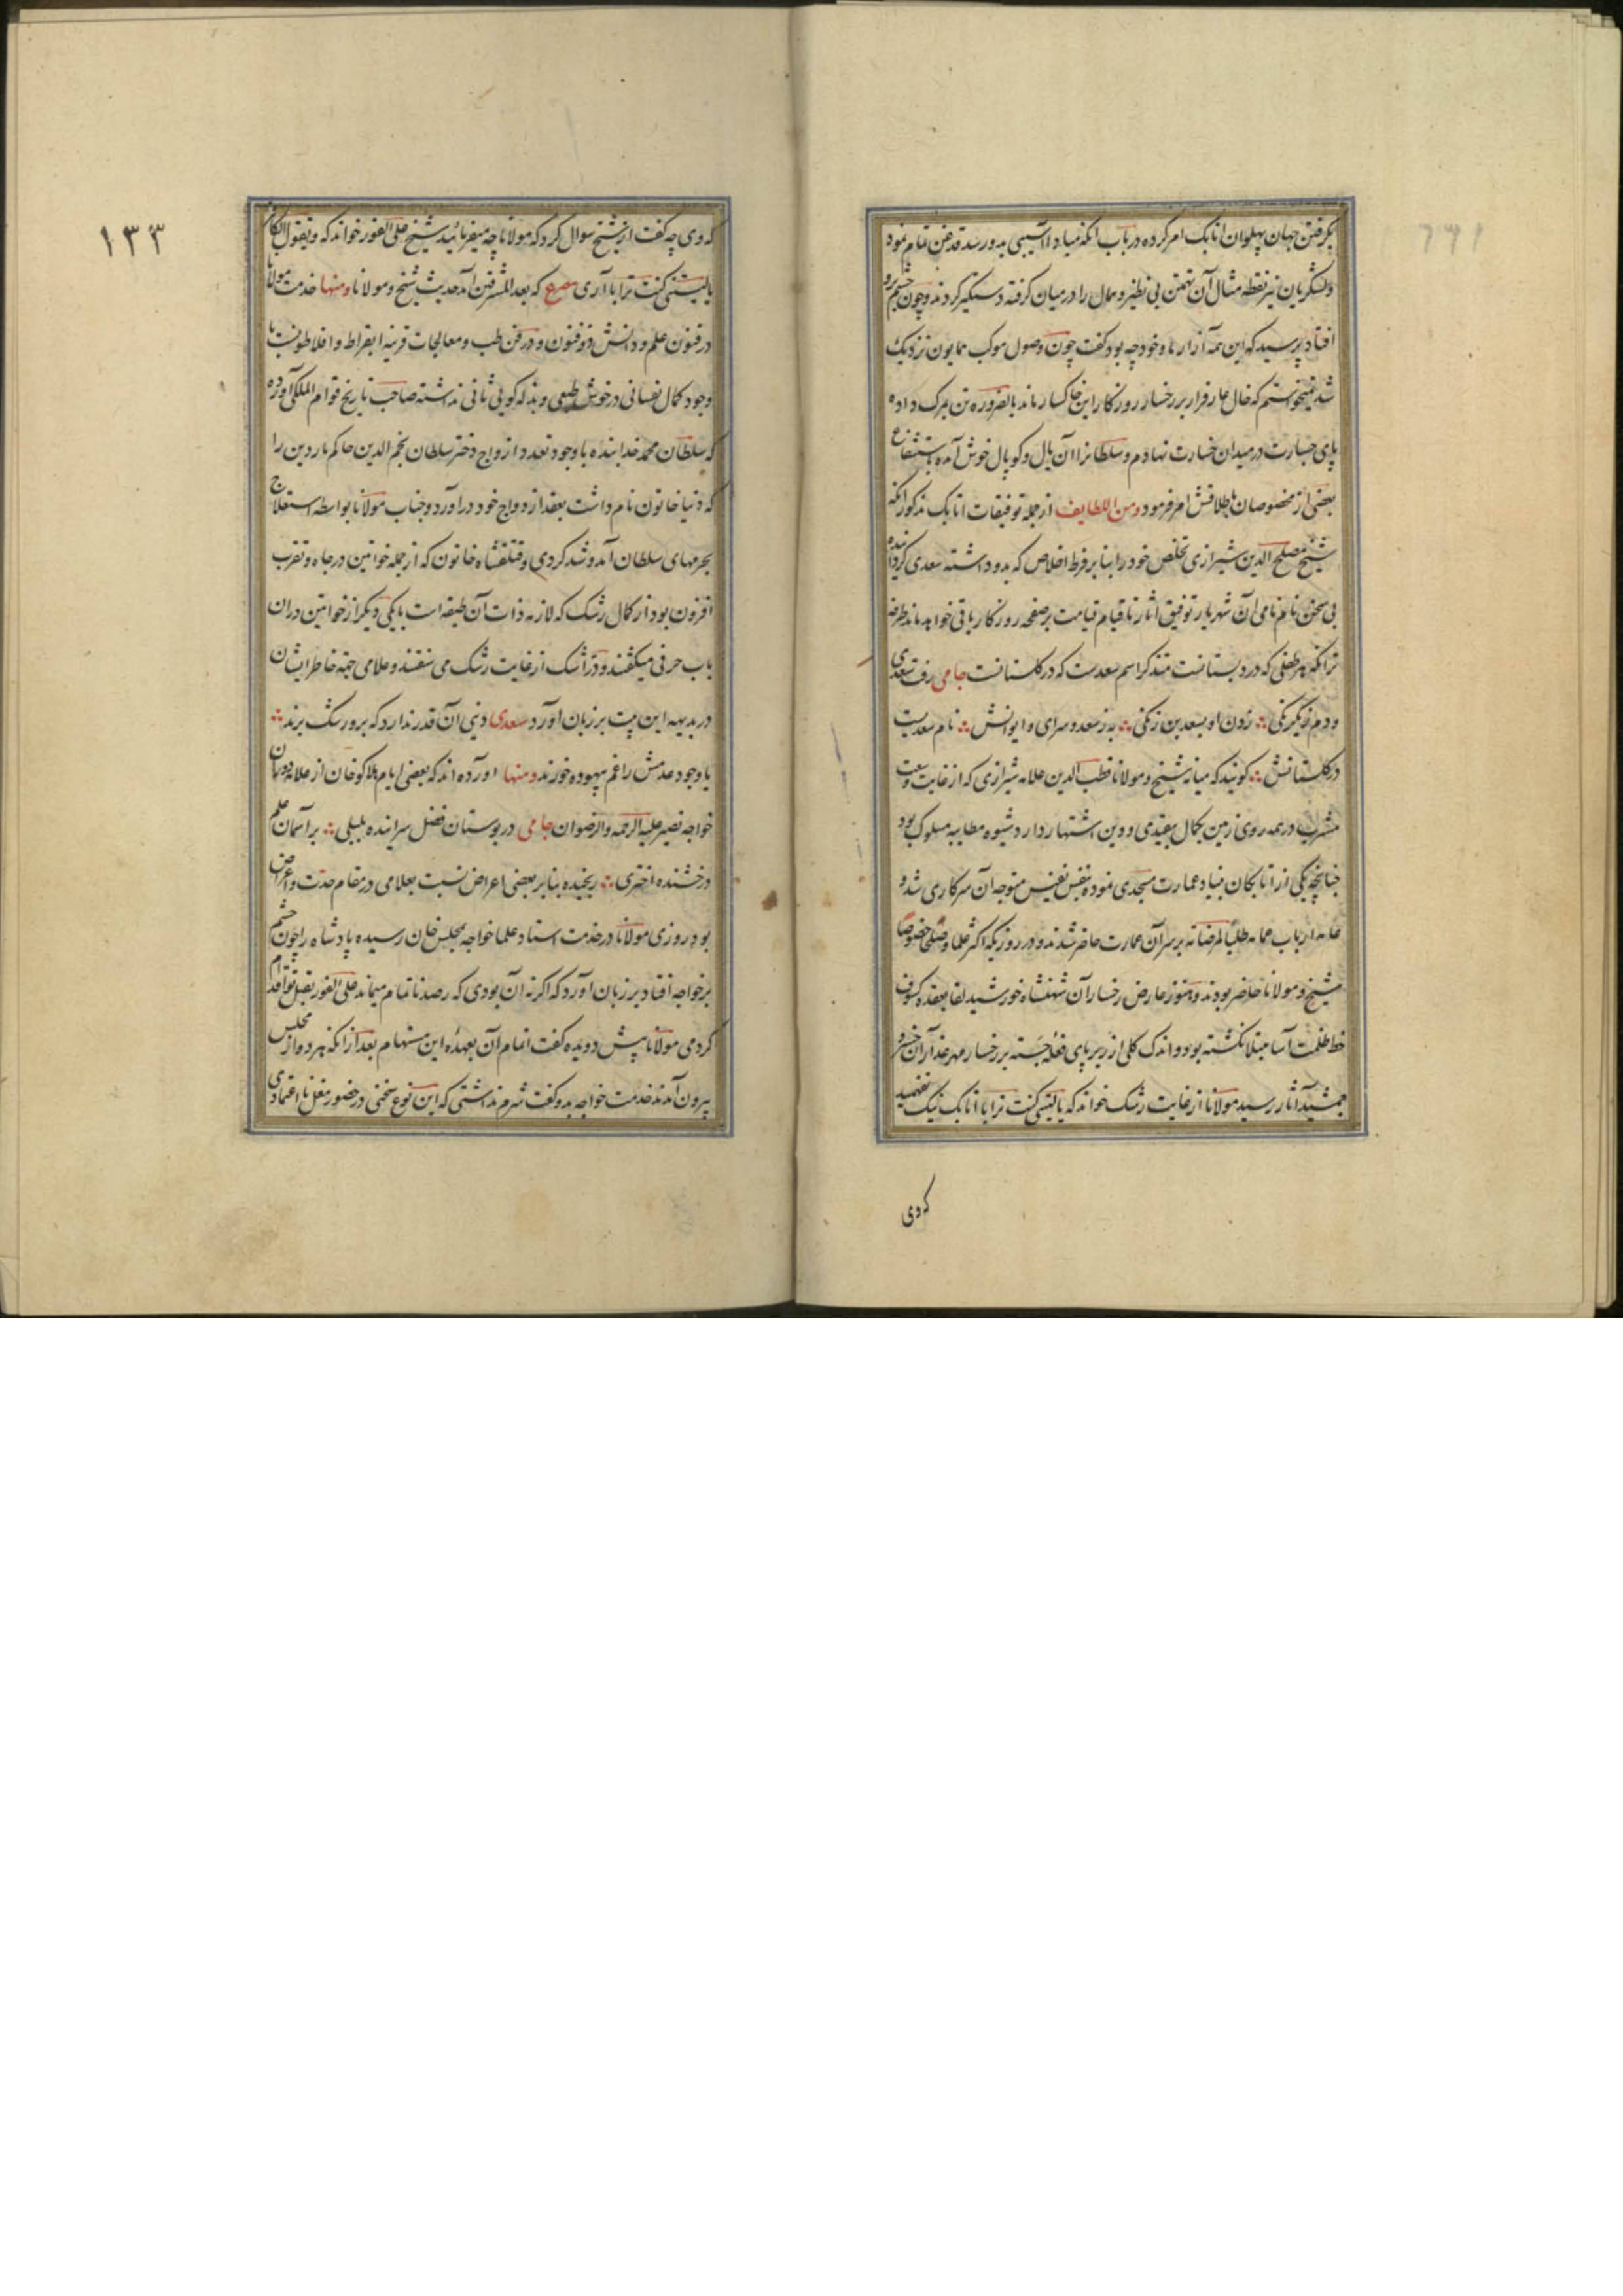 بگرفتن جهان پهلوان اتابک امر کرده در باب آنکه مبادا آسیبی بدو رسد قدغن تمام نمود
ولشکریان نیز نقطه مثال آن تهمتن بی نظیر و همال را در میان کرفته دستکیر کردند و چون چشم برو
افتاد پرسید که این همه آزار ما و خود چه بود کفت چون وصول موکب همایون نزدیک
شد نمیخواستم که خال عار فرار بر رخسار روزکار این خاکسار ماند بالضروره تن بمرک داده
پای جسارت در میدان خسارت نهادم و سلطانرا آن یال و کوپال خوش آمده باستشفاع
بعضی از مخصوصان باطلاقش امر فرمود ومن اللطایف از جمله توفیقات اتابک مذکور آنکه
شیخ مصلح الدین شیرازی تخلص خود را بنا بر فرط اخلاص که بدو داشته سعدی کردانیده
بی سخن نام نامی آن شهریار توفیق آثار تا قیام قیامت بر صفحه روزکار باقی خواهد ماند
زانکه هر طفلی که در دبستانست متذکر اسم سعدست که در کلستانست جامی رفت سعدی
ودم ز یکرنکی زدن او بسعد بن زنکی به ز سعد و سرای و ایوانش نام سعدیست
در کلستانش کویند که میانه شیخ و مولانا قطب الدین علامه شیرازی که از غایت وسعت
مشرب در همه روی زمین بکمال بیقیدی و دین اشتهار دارد شیوه مطایبه مسلوک بود
چنانچه یکی از اتابکان بنیاد عمارت مسجدی نموده بنفس نفیس متوجه آن سرکاری شد و
عامه ارباب عمامه طلبا لمرضاته بر سر آن عمارت حاضر شدند و در روزیکه اکثر علما و صلحا خصوصا
شیخ و مولانا حاضر بودند و هنوز عارض رخسار آن شهنشاه خورشید لقا بعقده کسوف
خط ظلمت آسا مبتلا نکشته بود و اندک کلی از زیر پای فعله جسته بر رخسار مهر عذار آن خسرو
جمشید آثار رسید مولانا از غایت رشک خواند که یالیتنی کنت ترابا اتابک نیک نفهمید
کردی
۱۳۳
که وی چه کفت از شیخ سوال کرد که مولانا چه میفرمائید شیخ علی الفور خواند که ویقول الکافر
یالیتنی کنت ترابا آری مصرع که بعد المشرقین آمد حدیث شیخ و مولانا ومنها خدمت مولانا
در فنون علم و دانش ذوفنون و در فن طب و معالجات قرینه ابقراط و افلاطونست با
وجود کمال نفسانی در خوش طبعی و بذله کویی ثانی نداشته صاحب تاریخ قوام الملکی آورده
که سلطان محمد خدابنده با وجود تعدد ازواج دختر سلطان نجم الدین حاکم ماردین را
که دنیا خاتون نام داشت بعقد ازدواج خود در آورد و جناب مولانا بواسطه استعلاج
بحرمهای سلطان آمد و شد کردی و قتلقشاه خاتون که از جمله خواتین در جاه و تقرب
افزون بود از کمال رشک که لازمه ذات آن طبقه است با یکی دیکر از خواتین در ان
باب حرفی میکفتند و در اشک از غایت رشک می سفتند و علامی جهة خاطر ایشان
در بدیهه این بیت بر زبان آورد سعدی دنیی آن قدر ندارد که برو رشک برند
یا وجود عدمش را غم بیهوده خورند ومنها آورده اند که بعضی ایام هلاکو خان از علامه دوران
خواجه نصیر علیه الرحمه والرضوان جامی در بوستان فضل سراینده بلبلی بر آسمان علم
درخشنده اختری رنجیده بنا بر بعضی اعراض نسبت بعلامی در مقام حدت و اعراض
بود روزی مولانا در خدمت استاد علما خواجه بمجلس خان رسیده پادشاه را چون چشم
بر خواجه افتاد بر زبان آورد که اکر نه آن بودی که رصد ناتمام میماند علی الفور بقتل تو اقدام
کردمی مولانا پیش دویده کفت اتمام آن بعهده این مستهام بعد از آنکه هر دو از مجلس
بیرون آمدند خدمت خواجه بدو کفت شرم نداشتی که این نوع سخنی در حضور مغل نا اعتمادی